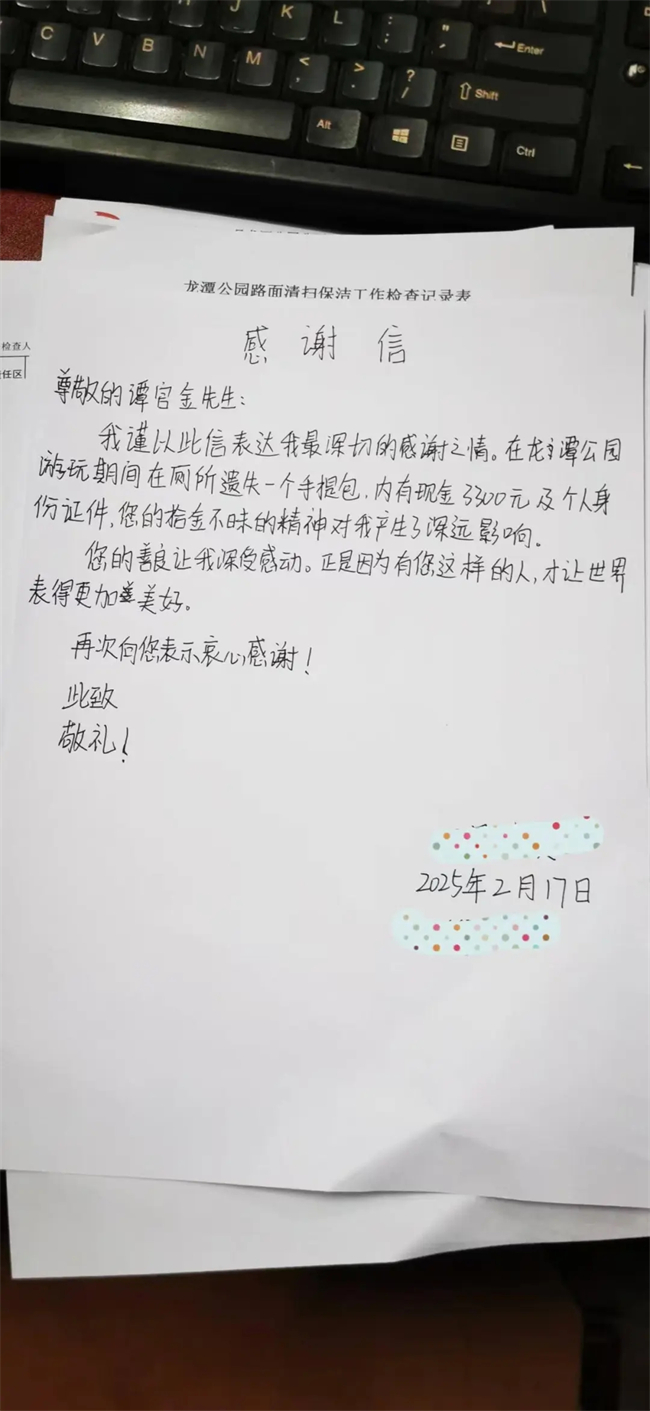 J K L : ; " ' \
C V B N M < , > . ? / Shift
Enter
Alt Ctrl
龙潭公园路面清扫保洁工作检查记录表
检查人
任区
感谢信
尊敬的谭官金先生:
我谨以此信表达我最深切的感谢之情。在龙潭公园
游玩期间在厕所遗失一个手提包,内有现金3300元及个人身
份证件,您的拾金不昧的精神对我产生了深远影响。
您的善良让我深受感动。正是因为有您这样的人,才让世界
表得更加美好。
再次向您表示衷心感谢!
此致
敬礼!
2025年2月17日